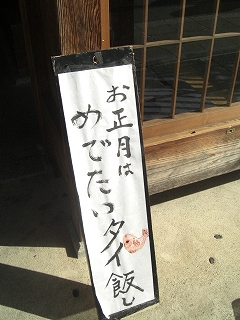 お正月は
めでたいタイ飯し